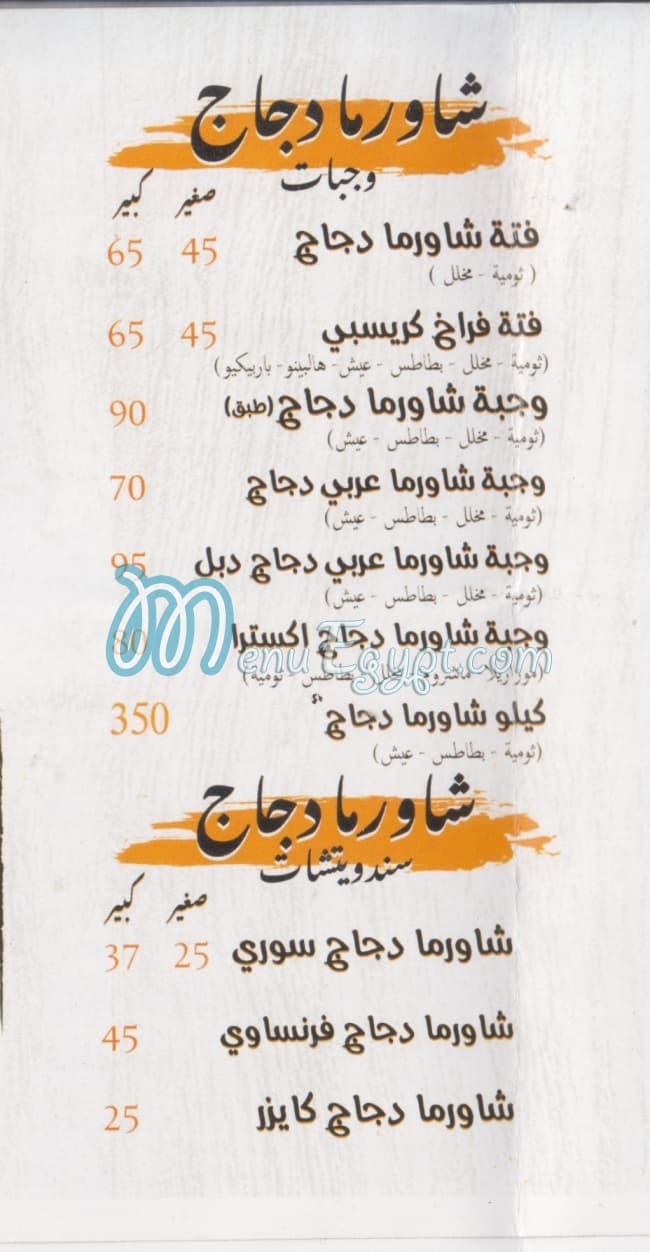 شاورما دجاج
وجبات
صغير كبير
فتة شاورما دجاج 45 65
( ثومية - مخلل )
فتة فراخ كريسبي 45 65
(ثومية - مخلل - بطاطس - عيش- هالبينو- باربيكيو)
وجبة شاورما دجاج (طبق) 90
(ثومية - مخلل - بطاطس - عيش)
وجبة شاورما عربي دجاج 70
(ثومية - مخلل - بطاطس - عيش)
وجبة شاورما عربي دجاج دبل 95
(ثومية - مخلل - بطاطس - عيش)
وجبة شاورما دجاج اكسترا 80
MenuEgypt.com
(موزاريلا- ماشروم- مخلل- بطاطس - ثومية)
كيلو شاورما دجاج 350
(ثومية - بطاطس - عيش)
شاورما دجاج
سندويتشات
صغير كبير
شاورما دجاج سوري 25 37
شاورما دجاج فرنساوي 45
شاورما دجاج كايزر 25